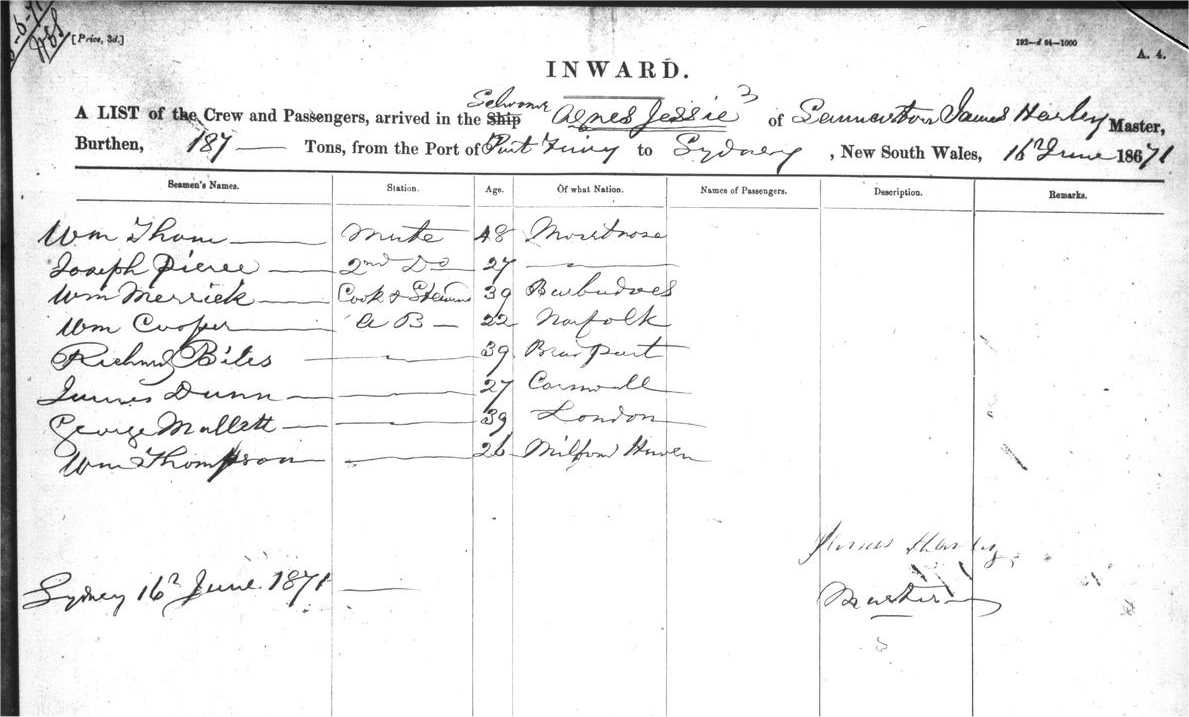 [Price, 3d.]
192—d 64—1000
A. 4.
INWARD.
A LIST of the Crew and Passengers, arrived in the Ship Schooner Agnes Jessie of Launceston James Harley Master,
Burthen, 187 Tons, from the Port of Port Pirie to Sydney, New South Wales, 16th June 1871
Seamen's Names. Station. Age. Of what Nation. Names of Passengers. Description. Remarks.
Wm Thom Mate 48 Montrose
Joseph Pierce 2nd Do 27
Wm Merrick Cook & Steward 39 Barbadoes
Wm Cooper A B 22 Norfolk
Richard Biles 39
James Dunn 27 Cornwall
George Mallett 39 London
Wm Thompson 26 Milford Haven
James Harley
Sydney 16th June 1871
Master